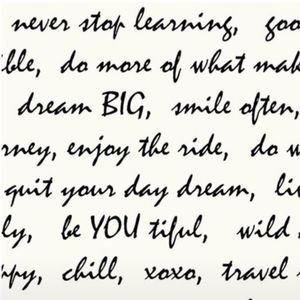 never stop learning, goo
ible, do more of what mak
dream BIG, smile often,
rney, enjoy the ride, do w
quit your day dream, li
ly, be YOU tiful, wild
ppy, chill, xoxo, travel